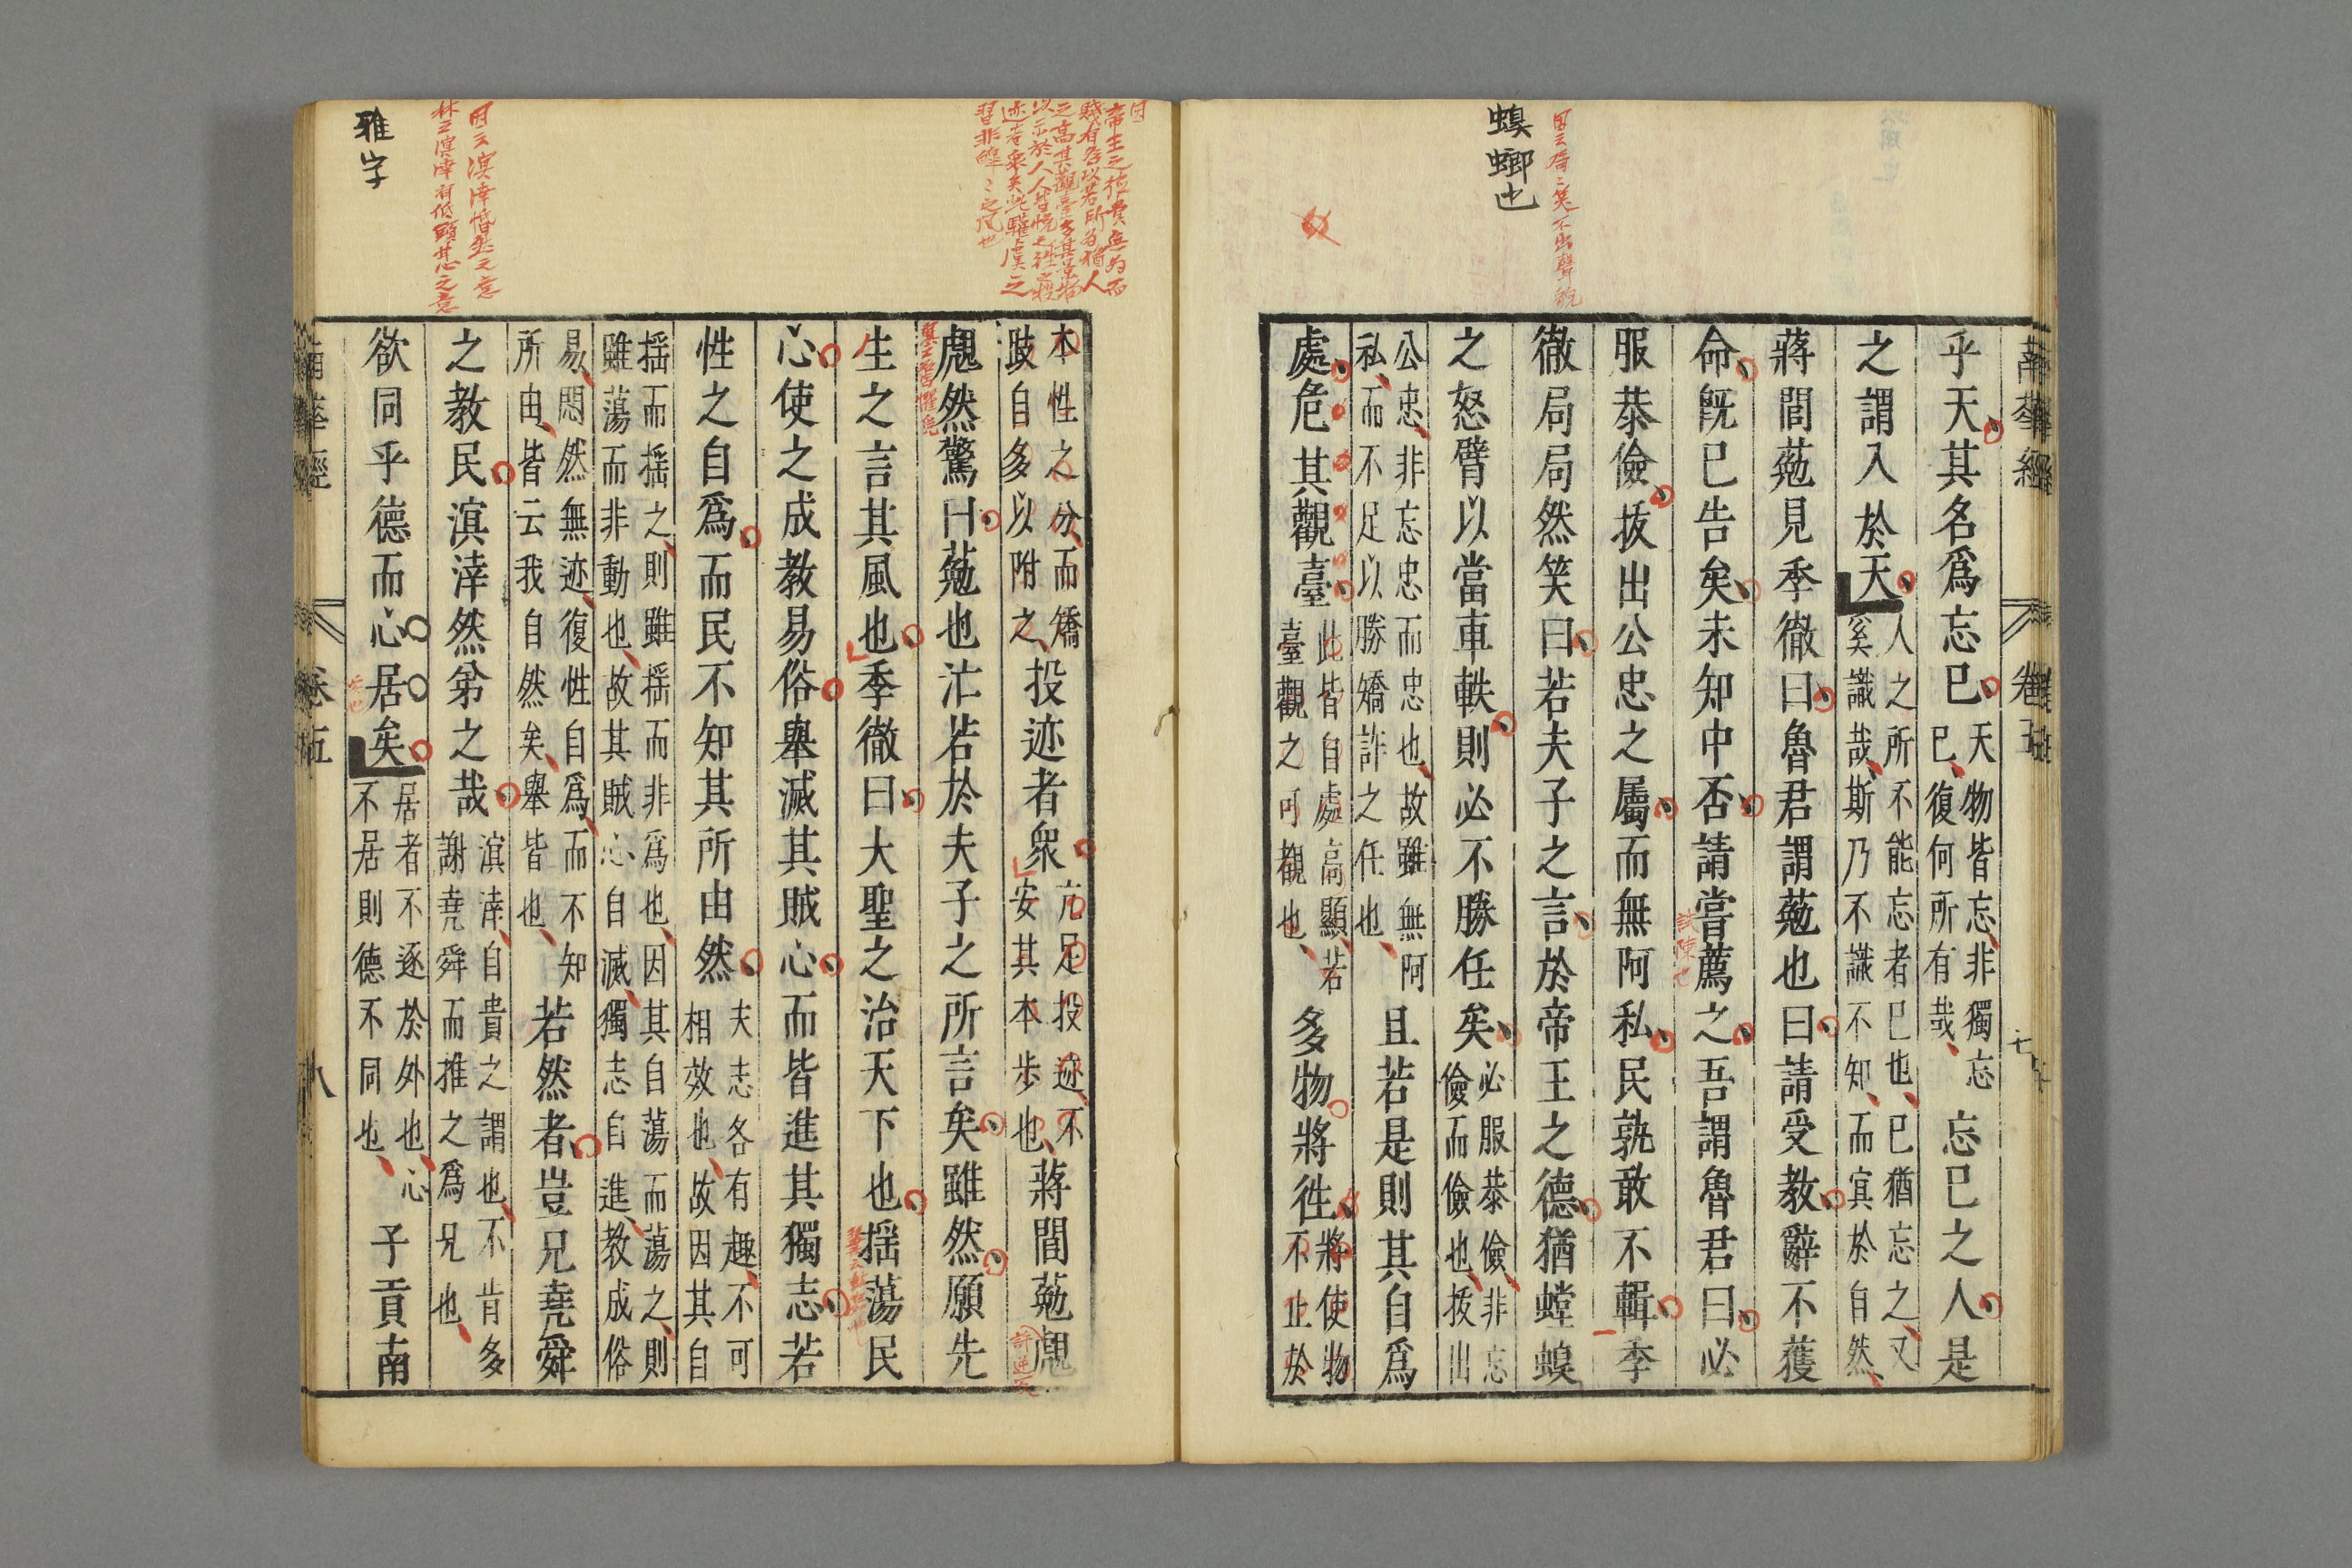 蟆螂也
南華經
卷五
七
乎天其名爲忘已
天物皆忘非獨忘
已復何所有哉
忘已之人是
之謂入於天
人之所不能忘者已也已猶忘之又
奚識哉斯乃不識不知而㝠於自然
蔣閭葂見季徹曰魯君謂葂也曰請受教辭不獲
命旣已告矣未知中否請嘗薦之吾謂魯君曰必
試陳也
服恭儉拔出公忠之屬而無阿私民孰敢不輯季
徹局局然笑曰若夫子之言於帝王之德猶螳螅
之怒臂以當車軼則必不勝任矣
必服恭儉非忘
儉而儉也拔出
公忠非忘忠而忠也故雖無阿
私而不足以勝矯詐之任也
且若是則其自爲
處危其觀臺
此皆自處高顯若
臺觀之可觀也
多物將徃
將使物
不止於
本性之分而矯
跂自多以附之
投迹者衆
亢足投迹不
安其本步也
蔣閭葂覤
覤然驚曰葂也汒若於夫子之所言矣雖然願先
生之言其風也季徹曰大聖之治天下也搖蕩民
心使之成教易俗舉滅其賊心而皆進其獨志若
性之自爲而民不知其所由然
夫志各有趣不可
相效也故因其自
搖而搖之則雖搖而非爲也因其自蕩而蕩之則
雖蕩而非動也故其賊心自滅獨志自進教成俗
易悶然無迹復性自爲而不知
所由皆云我自然矣舉皆也
若然者豈兄堯舜
之教民溟涬然弟之哉
溟涬自貴之謂也不肯多
謝堯舜而推之爲兄也
欲同乎德而心居矣
居者不逐於外也心
不居則德不同也
子貢南
雅字
南華經
卷五
八